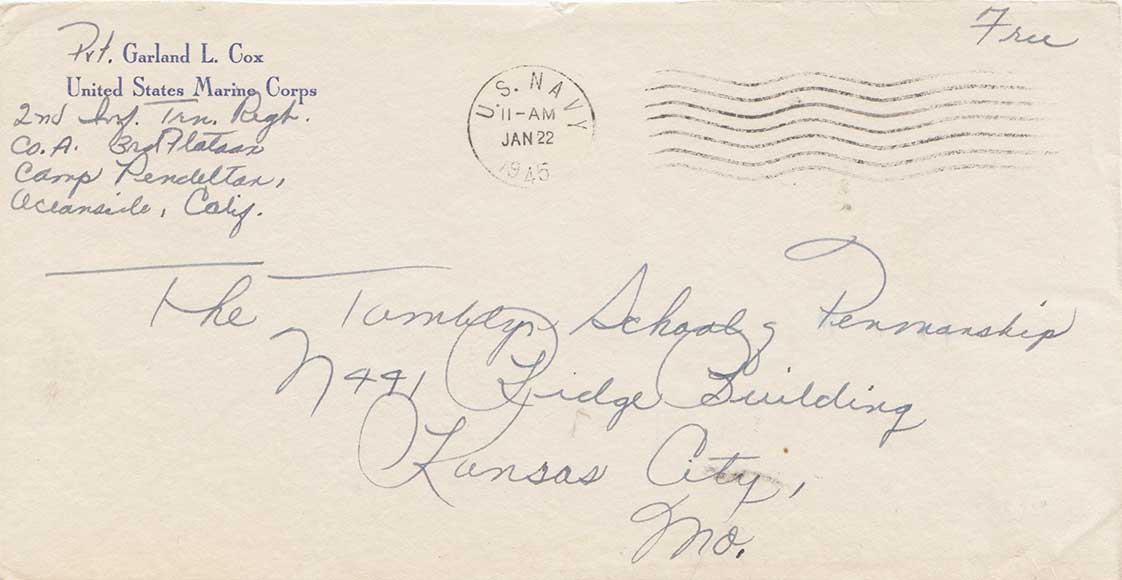 Free
Pvt. Garland L. Cox
United States Marine Corps
2nd Inf. Trn. Regt.
Co. A. 3rd Platoon
Camp Pendelton,
Oceanside, Calif.
U.S. NAVY
11-AM
JAN 22
1945
The Tamblyn School of Penmanship
N 441 Ridge Building
Kansas City,
Mo.